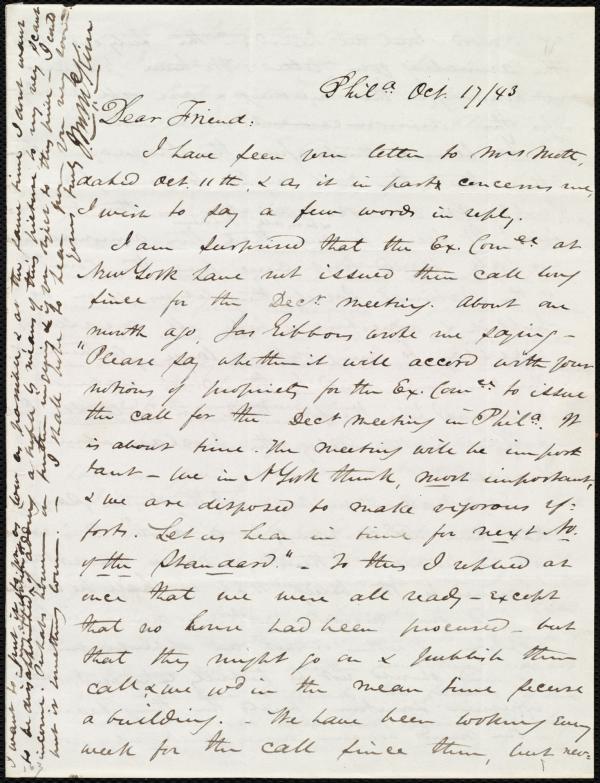 Phila. Oct. 17/43
Dear Friend:
I have seen your letter to Mrs Mott,
dated Oct. 11th, & as it in part concerns me,
I wish to say a few words in reply.
I am surprised that the Ex. Comee at
New York have not issued their call long
since for the Decr. meeting. About one
month ago, Jas Gibbons wrote me saying –
"Please say whether it will accord with your
notions of propriety for the Ex. Comee to issue
the call for the Decr meeting in Phila. It
is about time. The meeting will be impor
tant – we in N York think, most important,
& we are disposed to make vigorous ef-
forts. Let us hear in time for next No.
of the Standard." – To this I replied at
once that we were all ready – except
that no house had been procured – but
that they might go on & publish their
call & we wd in the mean time secure
a building. – We have been looking every
week for the call since then, but nev-
I want to put it to you as low as possible, & at the same time I don't want
to be
income.
but is something lower. – I shall hope to hear from you very soon.
Yours truly
J M McKim